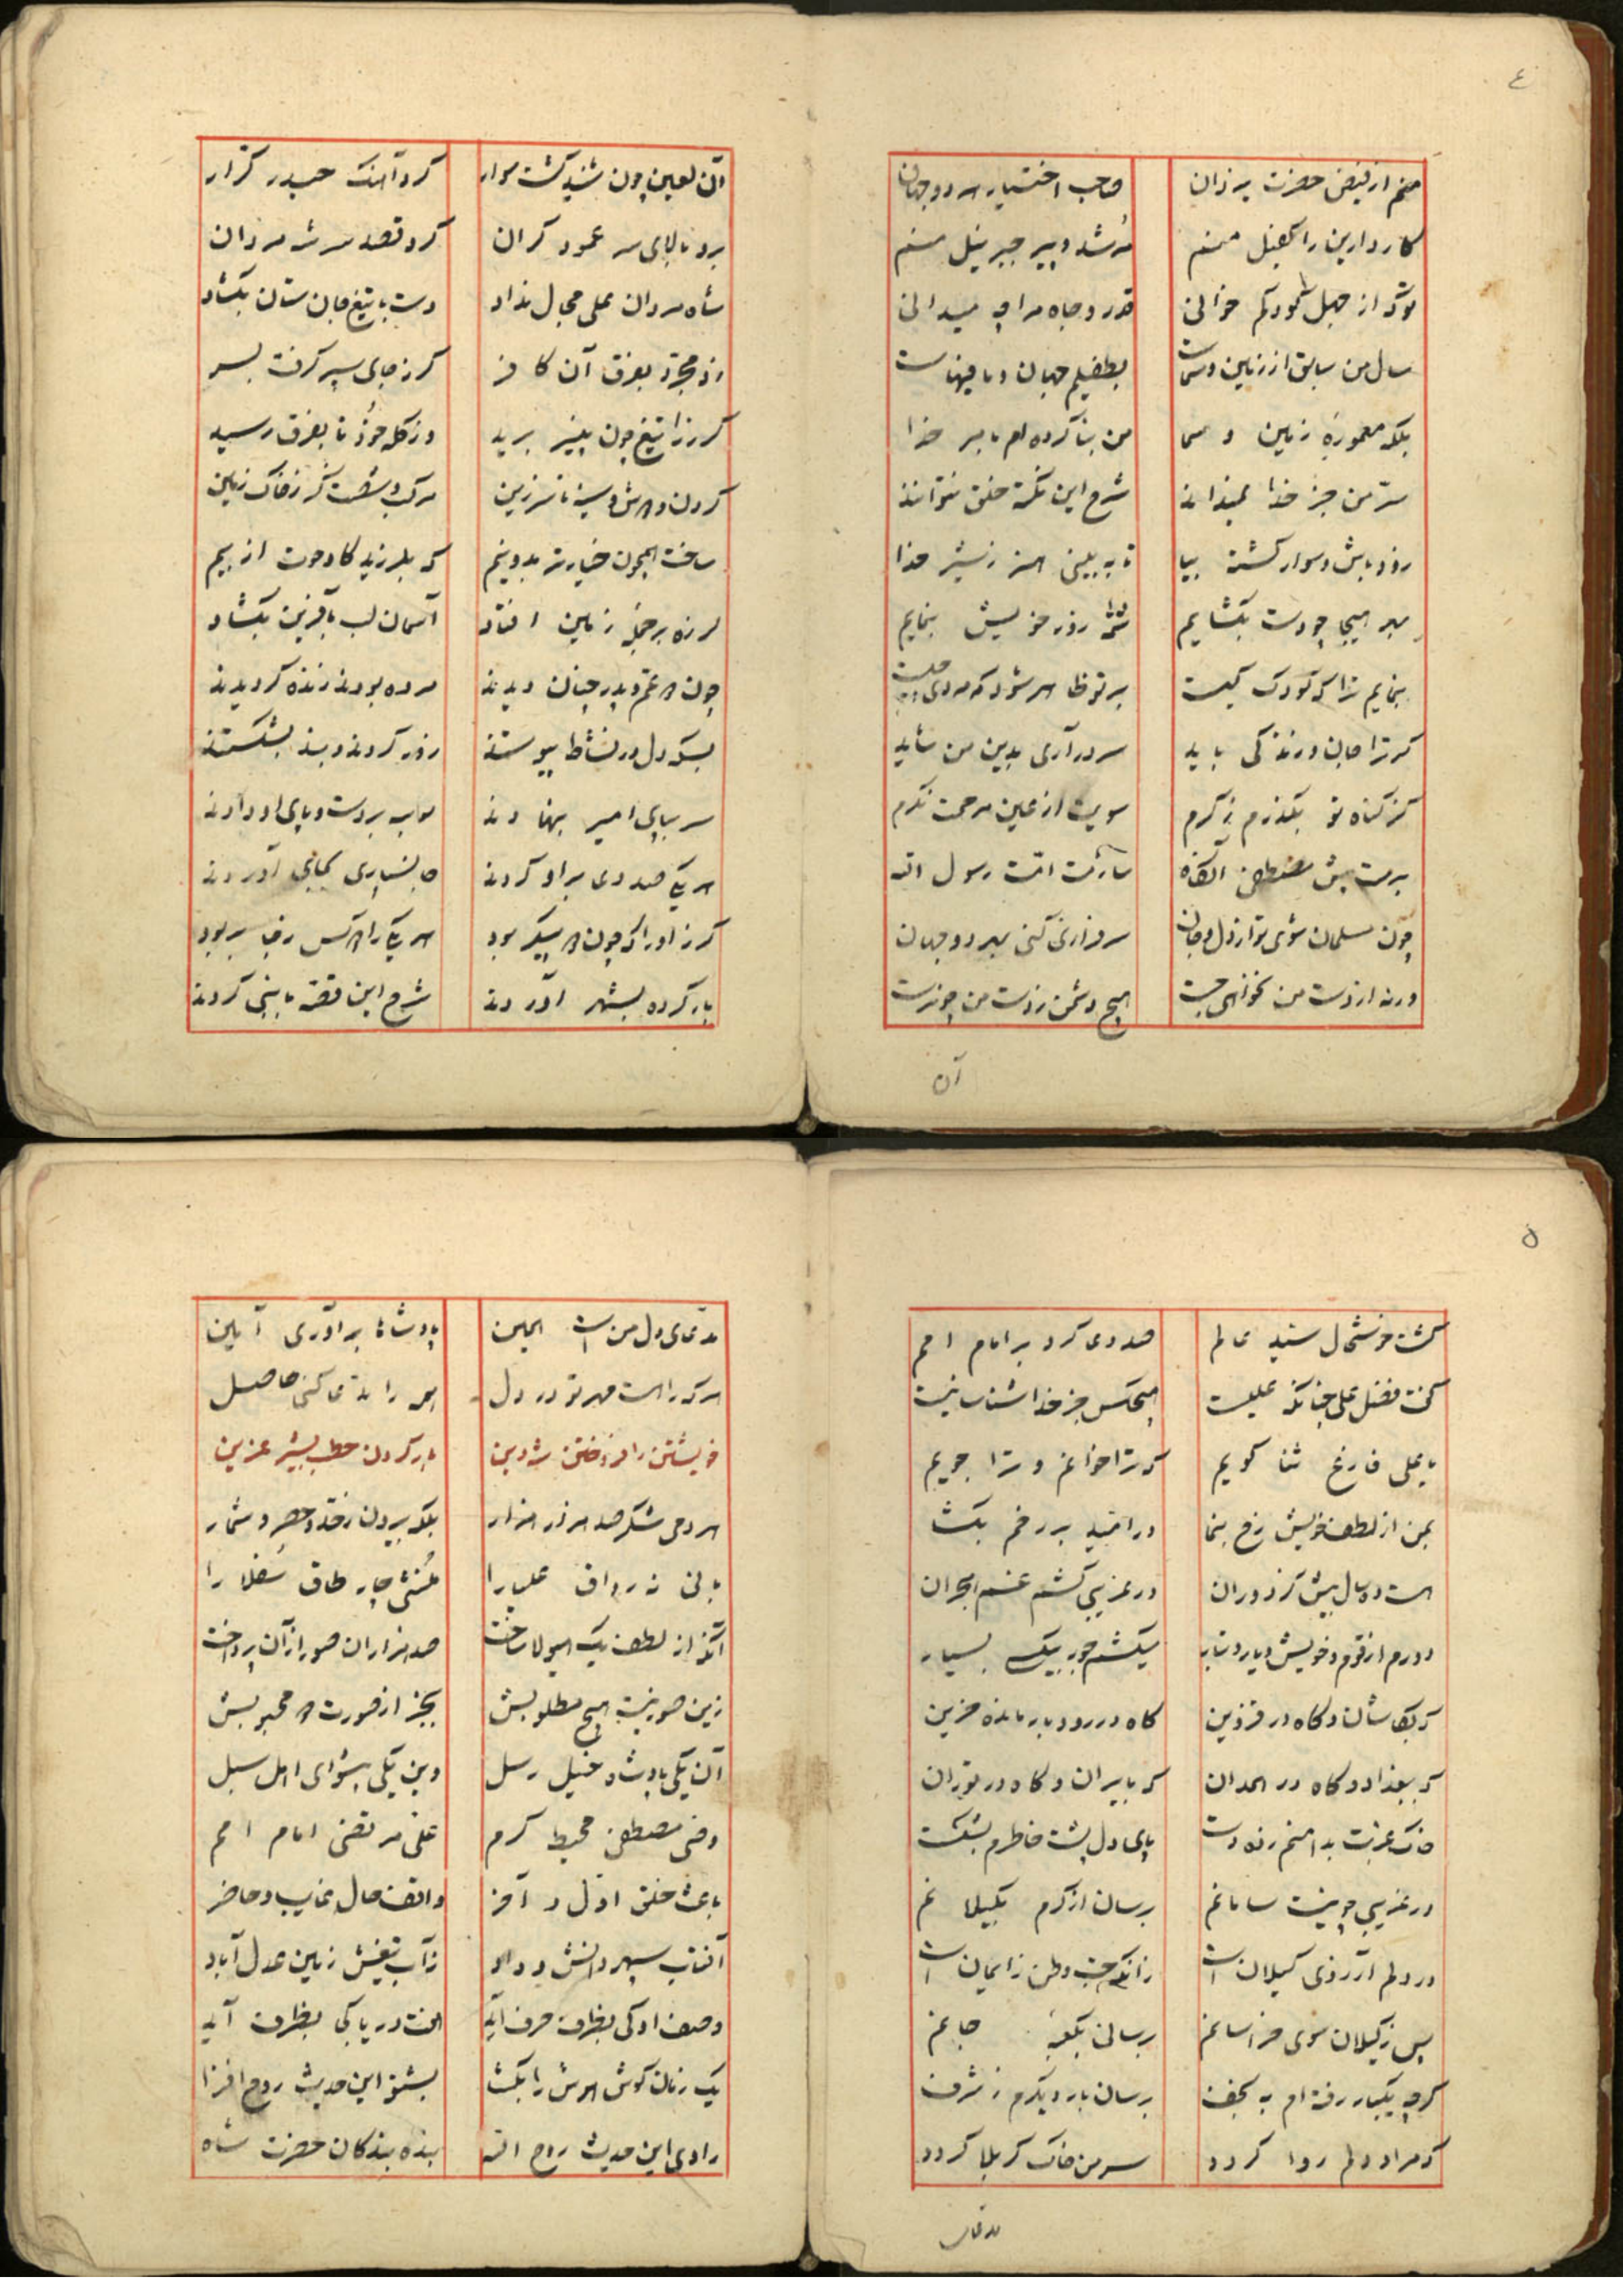 ٤
منم از فیض حضرت یزدان صاحب اختیار هر دو جهان
کار دارین را کفیل منم مرشد و پیر جبرئیل منم
تو که از جهل کودکم خوانی قدر و جاه مرا چه میدانی
سال من سابق از زمین و سماست بطفیلم جهان و مافیهاست
بلکه معموره زمین و سما من بنا کرده ام بامر خدا
سر من جز خدا نمیداند شرح این نکته خلق نتوانند
زود باش و سوار گشته بیا تا به بینی هنر ز شیر خدا
بهر هیجا چو دست بگشایم شمه زور خویش بنمایم
بنمایم ترا که کودک کیست بر تو ظاهر شود که مردی چیست
گر ترا جان و زندگی باید سر در آری بدین من شاید
گز گناه تو بگذرم ز کرم سویت از عین مرحمت نگرم
برمت پیش مصطفی آنگاه سازمت امت رسول الله
چون مسلمان شوی تو از دل و جان سرفرازی کنی بهر دو جهان
ورنه از دست من نخواهی جست هیچ دشمن ز دست من چو نرست
آن
آن لعین چون شنید گشت سوار کرد آهنگ حیدر کرار
برد بالای سر عمود گران کرد قصد سر شه مردان
شاه مردان علی مجال نداد دست با تیغ جان ستان بگشاد
زد بفرق آن کافر گرز جای سپر گرفت بسر
گرز را تیغ چون پنیر برید وز کله خود تا بفرق رسید
گردن و دوش و سینه تا سر زین مرکب و
ساخت همچون خیار تر بدو نیم که بلرزید گاو و حوت از بیم
لرزه بر جمله زمین افتاد آسمان لب بآفرین بگشاد
چون عم و پدر چنان دیدند مرده بودند زنده گردیدند
بسکه دل در نشاط پیوستند زور کردند و بند بشکستند
سر بپای امیر بنهادند بوسه بر دست و پای او دادند
هر یکی صد دعا بر او کردند جانسپاری بجای آوردند
گرز او را که چون پیکر بود هر یکی را
بار کرده بشهر آوردند شرح این قصه با نبی کردند
٥
گشت خوشحال سید عالم صد دعا کرد بر امام امم
گفت فضل علی چنانکه علیست هیچکس جز خدا شناسا نیست
یا علی فارغ ثنا گویم که ترا خوانم و ترا جویم
بمن از لطف خویش رخ بنما در امید بر رخم بگشا
هست ده سال بیش کز دوران در غریبی کشم غم هجران
دورم از قوم و خویش و یار و تبار میکشم جور بیکسی بسیار
گه بکاشان و گاه در قزوین گاه در رودبار مانده حزین
گه ببغداد و گاه در همدان گه بایران و گاه در توران
خاک غربت بدامنم زده دست پای دل پشت خاطرم بشکست
در غریبی چو نیست سامانم برسان از کرم بگیلانم
در دلم آرزوی گیلان است زانکه حب وطن ز ایمان است
پس ز گیلان سوی خراسانم برسان بکعبه جانم
گرچه یکبار رفته ام به نجف برسان بار دیگرم ز شرف
که مراد دلم روا گردد سر من خاک کربلا گردد
مدعای
مدعای دل من است همین پادشاها بر آوری آمین
هر که راست مهر تو در دل همه را مدعا کنی حاصل
خویشتن را فروختن شه دین بار کردن حطب بشیر عرین
هر دمی شکر صد هزار هزار بلکه بیرون ز حد و حصر و شمار
بانی نه رواق علیا را منشی چار طاق سفلا را
آنکه از لطف یک هیولا ساخت صد هزاران صور از آن پرداخت
زین صور نیست هیچ مطلوبش بجز از صورت دو محبوبش
آن یکی پادشاه خیل رسل وین یکی پیشوای اهل سبل
وصی مصطفی محیط کرم علی مرتضی امام امم
باعث خلق اول و آخر واقف حال غایب و حاضر
آفتاب سپهر دانش و داد ز آب تیغش زمین عدل آباد
وصف او کی بظرف حرف آید هفت دریا کجا بظرف آید
یک زمان گوش هوش را بگشا بشنو این حدیث روح افزا
راوی این حدیث روح الله بنده بندگان حضرت شاه